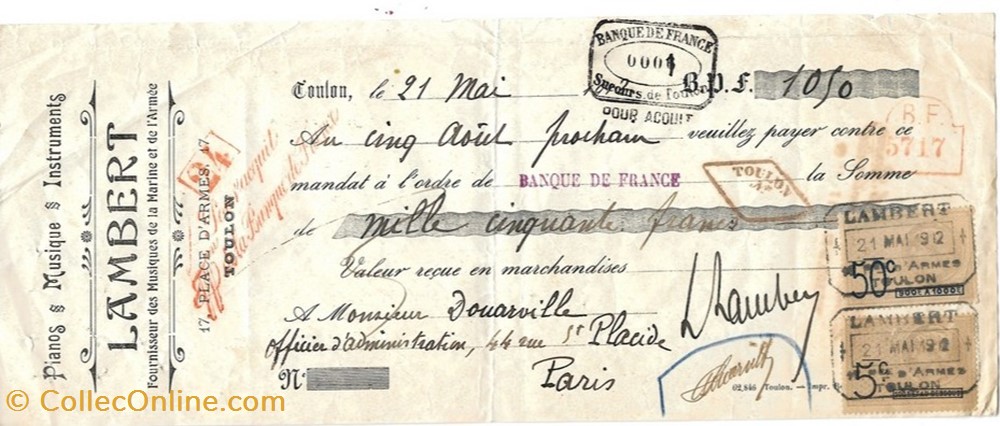 Pianos § § Musique § § Instruments
LAMBERT
Fournisseur des Musiques de la Marine et de l'Armée
17, PLACE D'ARMES, 17
TOULON
Toulon, le 21 Mai
BANQUE DE FRANCE
0001
Succurs. de Toulon
POUR ACQUIT
B.P.F. 1050
Au cinq Août prochain veuillez payer contre ce
B.F.
5717
mandat à l'ordre de BANQUE DE FRANCE
TOULON
la Somme
de mille cinquante francs
Valeur reçue en marchandises
A Monsieur Douarville
Officier d'administration, 44 rue St Placide
Paris
N°
LAMBERT
21 MAI 1912
TOULON
50c
LAMBERT
21 MAI 1912
TOULON
5c
62,846 Toulon. — Impr.
© CollecOnline.com